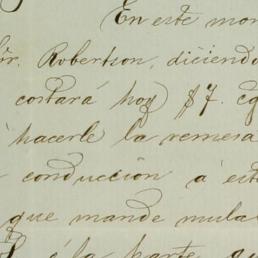 En este mom
Sor. Robertson, diciendo
costará hoy $7. cg
hacerle la remesa
conducción á est
que mande mula
á la parte qu